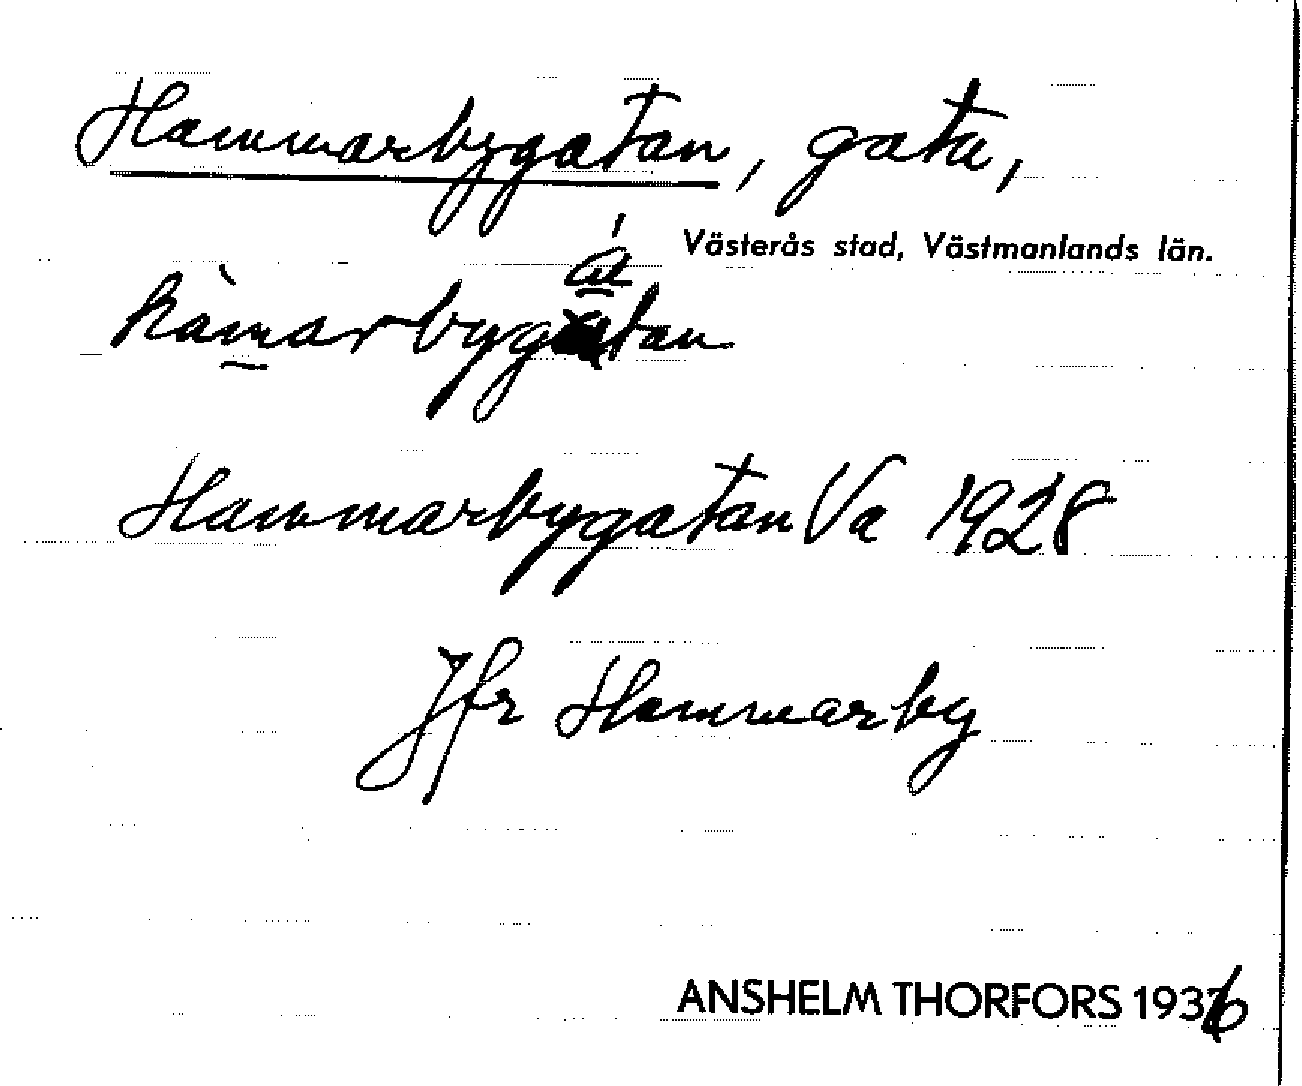 Hammarbygatan, gata,
Västerås stad, Västmanlands län.
hàmarbygátan
Hammarbygatan Va 1928
Jfr Hammarby
ANSHELM THORFORS 1936